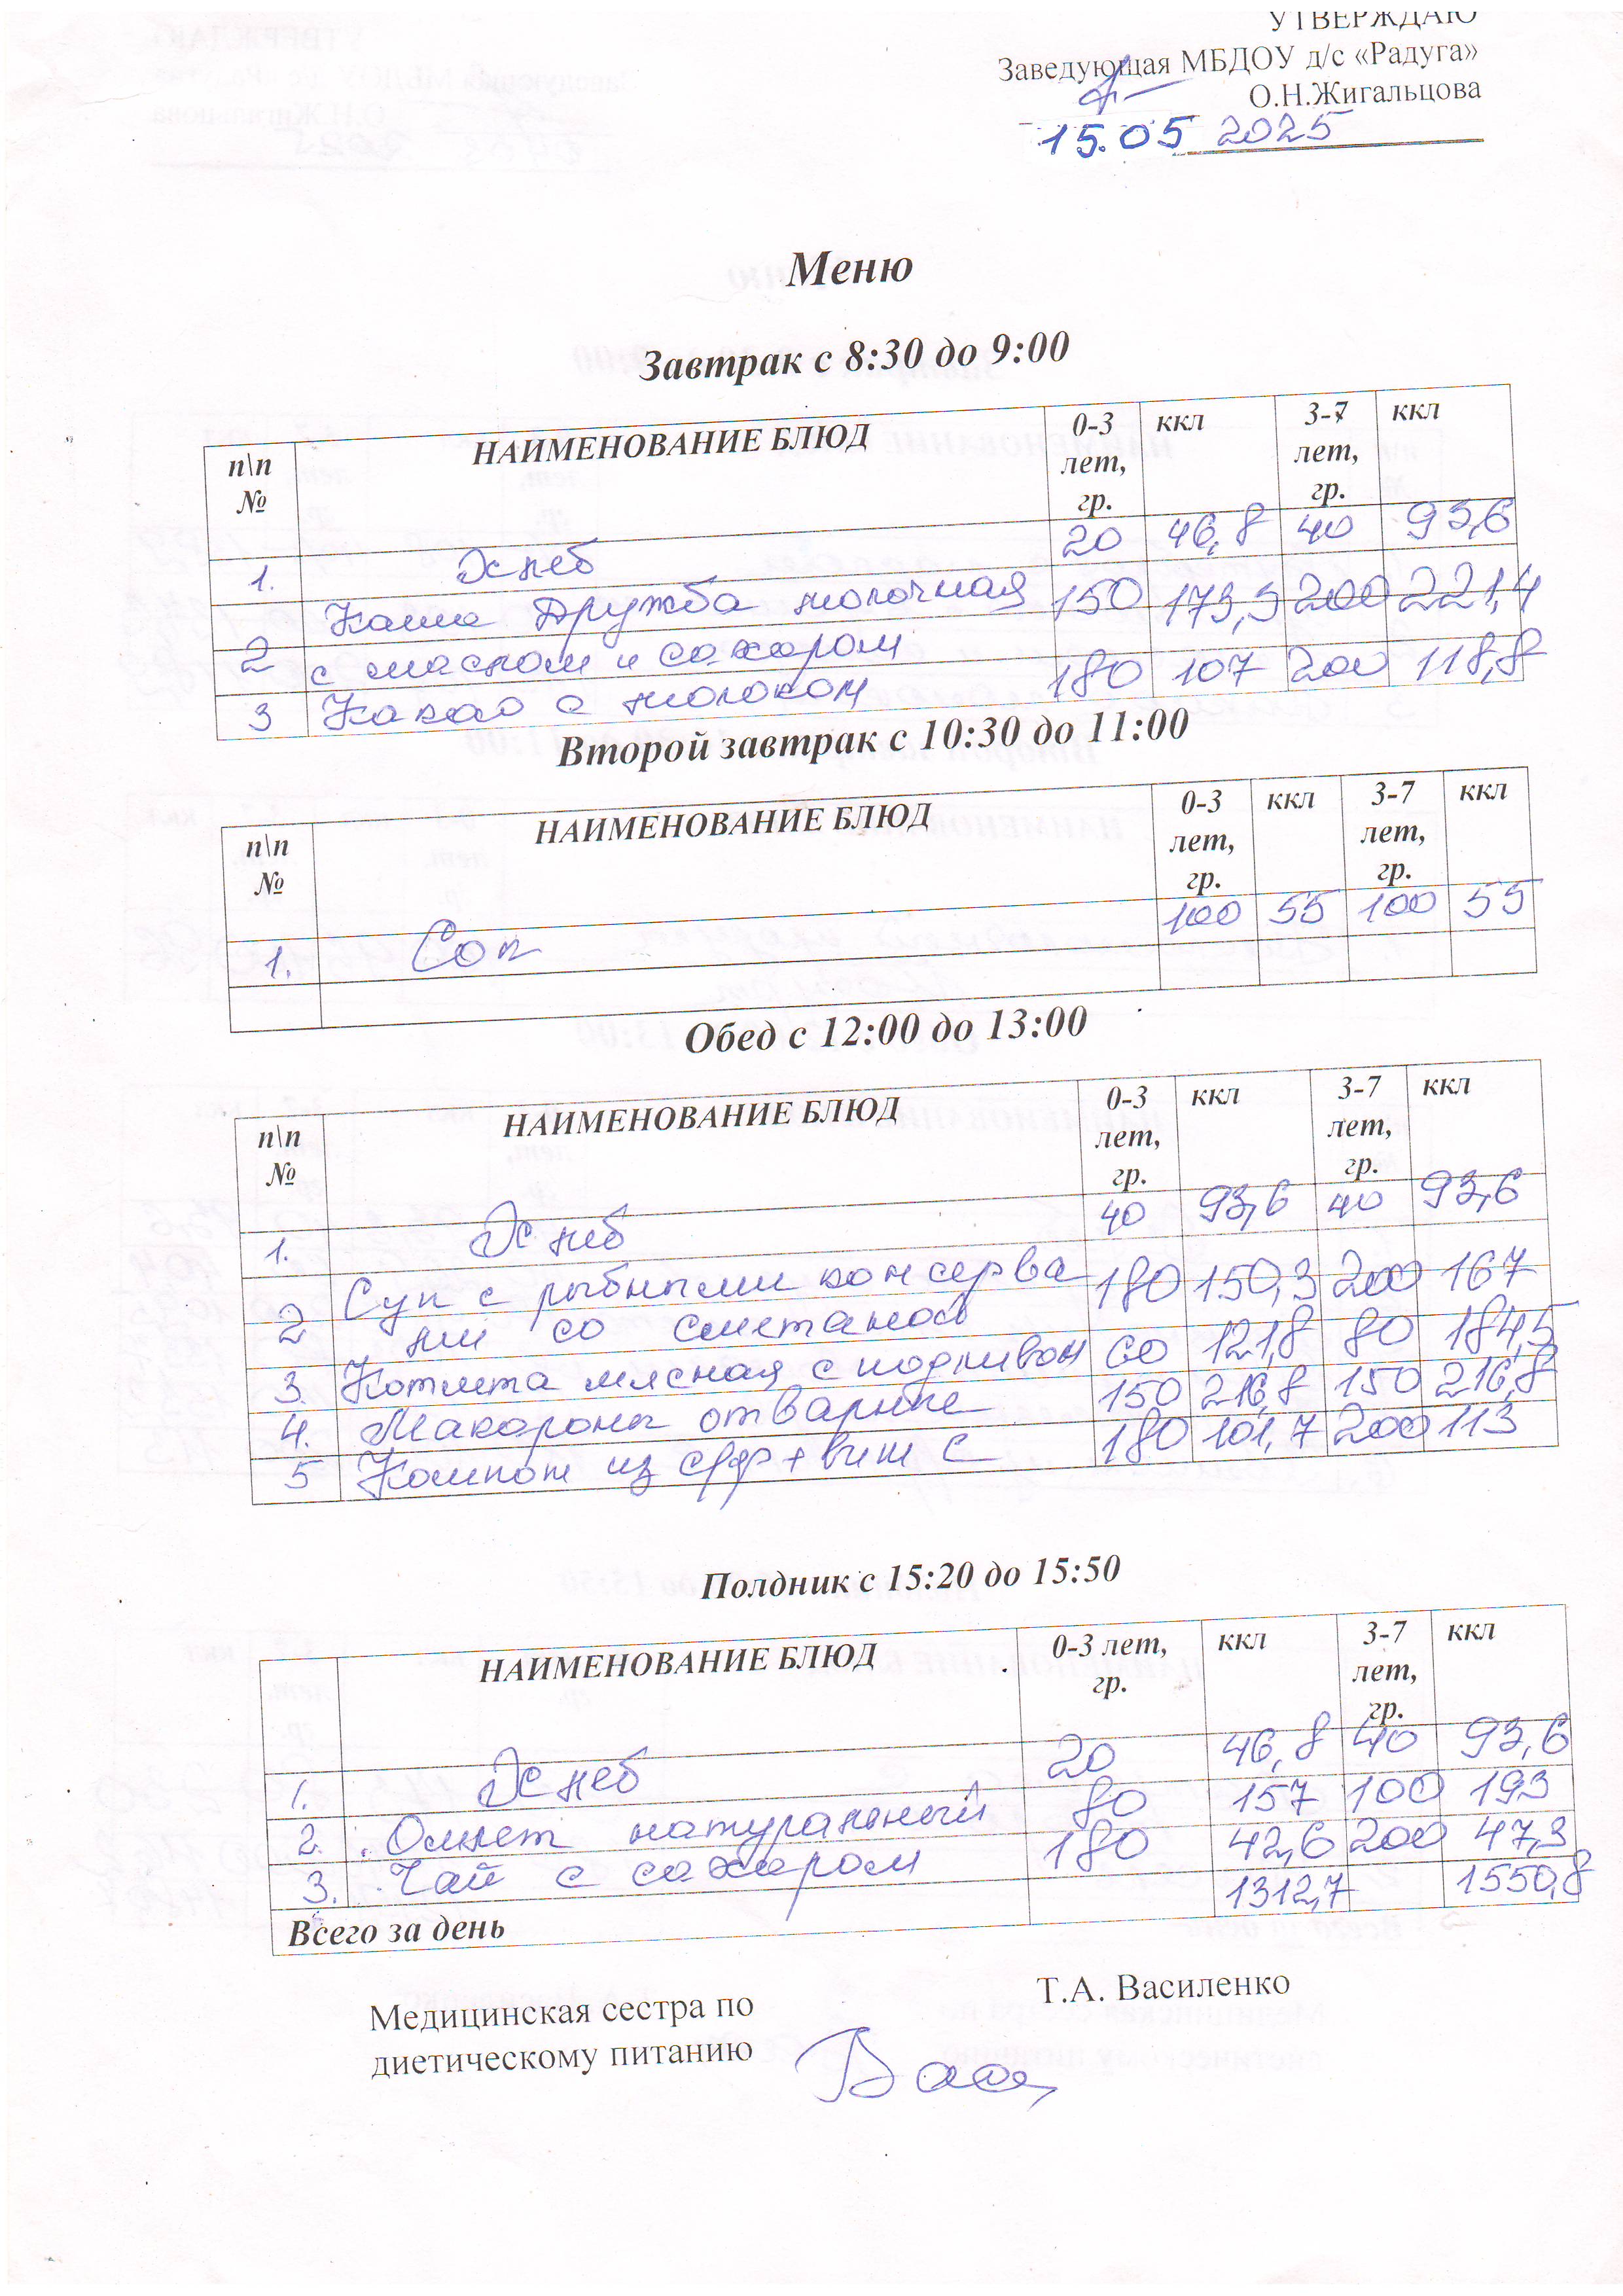 УТВЕРЖДАЮ
Заведующая МБДОУ д/с «Радуга»
О.Н.Жигальцова
15.05 2025
Меню
Завтрак с 8:30 до 9:00
п\п № НАИМЕНОВАНИЕ БЛЮД 0-3 лет, гр. ккл 3-7 лет, гр. ккл
1. Хлеб 20 46,8 40 93,6
2 Каша Дружба молочная 150 173,3 200 221,4
с маслом и сахаром
3 Какао с молоком 180 107 200 118,8
Второй завтрак с 10:30 до 11:00
п\п № НАИМЕНОВАНИЕ БЛЮД 0-3 лет, гр. ккл 3-7 лет, гр. ккл
1. Сок 100 55 100 55
Обед с 12:00 до 13:00
п\п № НАИМЕНОВАНИЕ БЛЮД 0-3 лет, гр. ккл 3-7 лет, гр. ккл
1. Хлеб 40 93,6 40 93,6
2 Суп с рыбными консерва 180 150,3 200 167
ми со сметаной
3. Котлета мясная с подливой 60 121,8 80 184,5
4. Макароны отварные 150 216,8 150 216,8
5 Компот из с/ф + вит С 180 101,7 200 113
Полдник с 15:20 до 15:50
НАИМЕНОВАНИЕ БЛЮД 0-3 лет, гр. ккл 3-7 лет, гр. ккл
1. Хлеб 20 46,8 40 93,6
2. Омлет натуральный 80 157 100 193
3. Чай с сахаром 180 42,6 200 47,3
Всего за день 1312,7 1550,8
Медицинская сестра по Т.А. Василенко
диетическому питанию